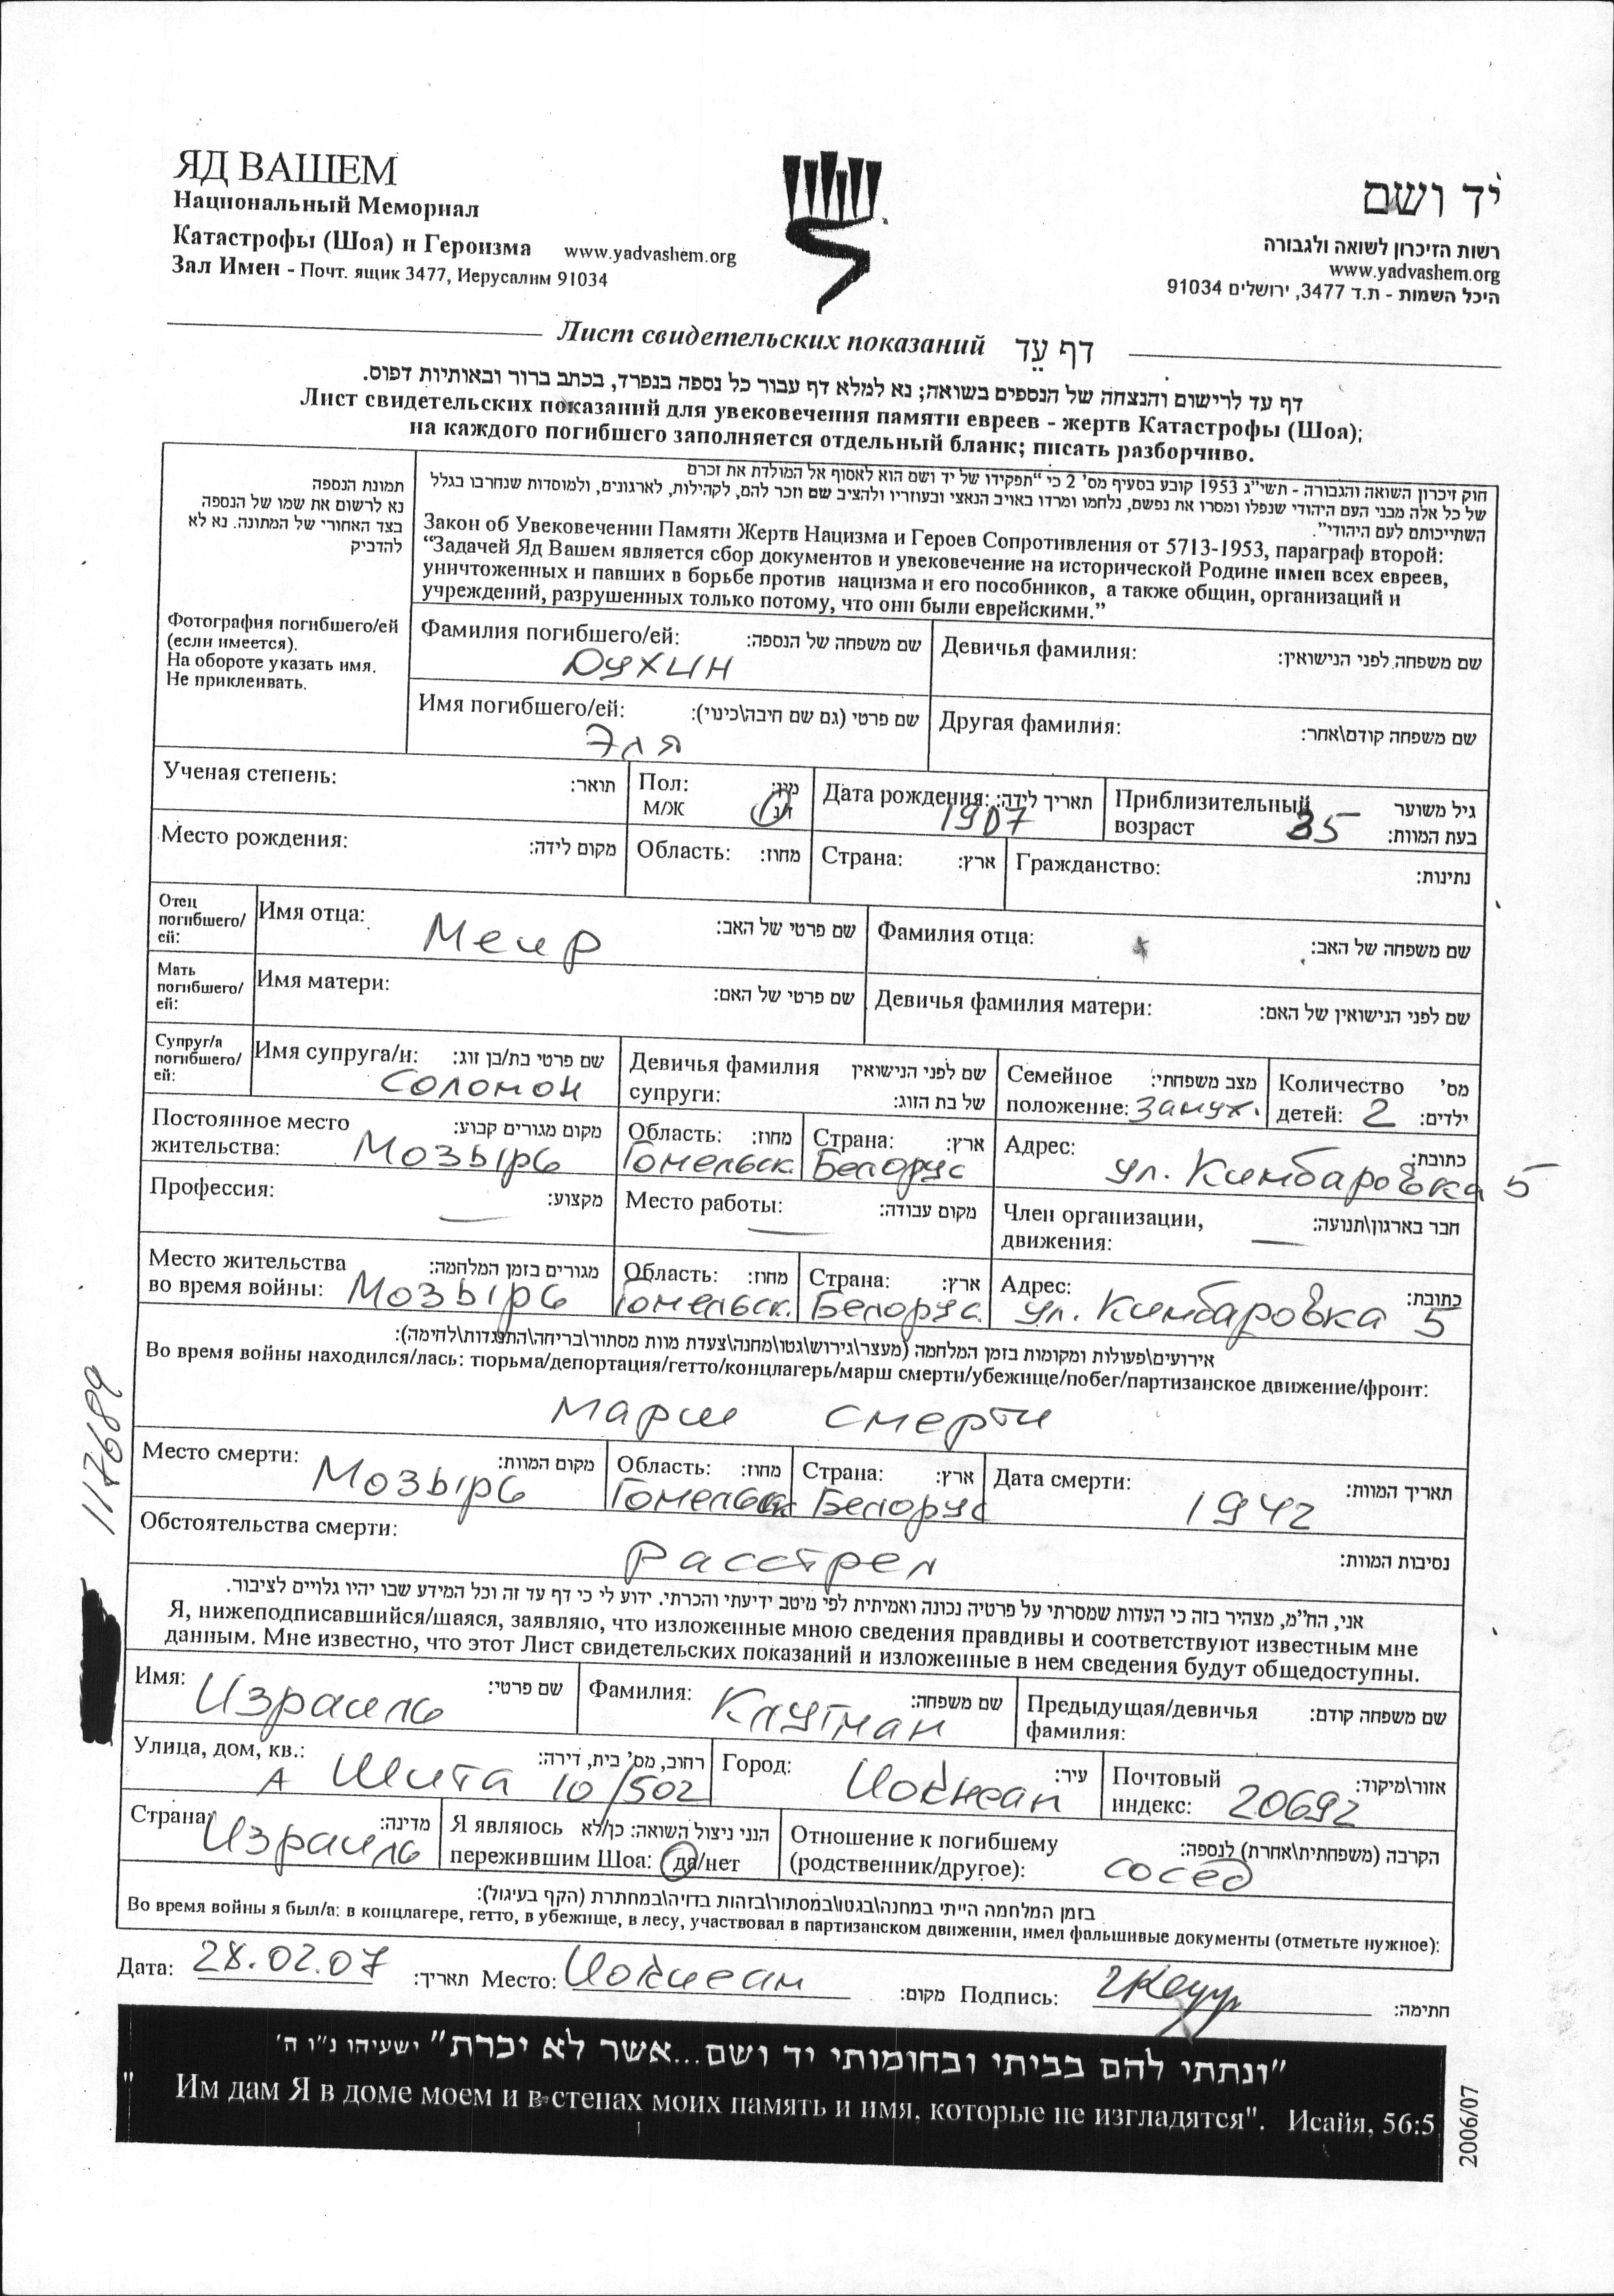 ЯД ВАШЕМ
Национальный Мемориал
Катастрофы (Шоа) и Героизма www.yadvashem.org
Зал Имен - Почт. ящик 3477, Иерусалим 91034
יד ושם
רשות הזיכרון לשואה ולגבורה
www.yadvashem.org
היכל השמות - ת.ד 3477, ירושלים 91034
Лист свидетельских показаний דף עֵד
דף עד לרישום והנצחה של הנספים בשואה; נא למלא דף עבור כל נספה בנפרד, בכתב ברור ובאותיות דפוס.
Лист свидетельских показаний для увековечения памяти евреев - жертв Катастрофы (Шоа);
на каждого погибшего заполняется отдельный бланк; писать разборчиво.
תמונת הנספה
נא לרשום את שמו של הנספה
בצד האחורי של המתונה. נא לא
להדביק
Фотография погибшего/ей
(если имеется).
На обороте указать имя.
Не приклеивать.
חוק זיכרון השואה והגבורה - תשי"ג 1953 קובע בסעיף מס' 2 כי "תפקידו של יד ושם הוא לאסוף אל המולדת את זכרם
של כל אלה מבני העם היהודי שנפלו ומסרו את נפשם, נלחמו ומרדו באויב הנאצי ובעוזריו ולהציב שם וזכר להם, לקהילות, לארגונים, ולמוסדות שנחרבו בגלל
השתייכותם לעם היהודי".
Закон об Увековечении Памяти Жертв Нацизма и Героев Сопротивления от 5713-1953, параграф второй:
“Задачей Яд Вашем является сбор документов и увековечение на исторической Родине имен всех евреев,
уничтоженных и павших в борьбе против нацизма и его пособников, а также общин, организаций и
учреждений, разрушенных только потому, что они были еврейскими.”
Фамилия погибшего/ей: שם משפחה של הנספה: Девичья фамилия: שם משפחה לפני הנישואין:
Духин
Имя погибшего/ей: שם פרטי (גם שם חיבה\כינוי): Другая фамилия: שם משפחה קודם\אחר:
Эля
Ученая степень: תואר: Пол: מין: Дата рождения: תאריך לידה: Приблизительный גיל משוער
М/Ж ז/נ 1907 возраст 35 בעת המוות:
Место рождения: מקום לידה: Область: מחוז: Страна: ארץ: Гражданство: נתינות:
Отец
погибшего/
ей:
Имя отца: Меир שם פרטי של האב: Фамилия отца: שם משפחה של האב:
Мать
погибшего/
ей:
Имя матери: שם פרטי של האם: Девичья фамилия матери: שם לפני הנישואין של האם:
Супруг/а
погибшего/
ей:
Имя супруга/и: שם פרטי בת/בן זוג: Девичья фамилия שם לפני הנישואין Семейное מצב משפחתי: Количество מס'
Соломон супруги: של בת הזוג: положение: замуж. детей: 2 ילדים:
Постоянное место מקום מגורים קבוע: Область: מחוז: Страна: ארץ: Адрес: כתובת:
жительства: Мозырь Гомельск. Белорус ул. Кимбаровка 5
Профессия: — מקצוע: Место работы: — מקום עבודה: Член организации, חבר בארגון\תנועה:
движения: —
Место жительства מגורים בזמן המלחמה: Область: מחוז: Страна: ארץ: Адрес: כתובת:
во время войны: Мозырь Гомельск. Белорус. ул. Кимбаровка 5
אירועים\פעולות ומקומות בזמן המלחמה (מעצר\גירוש\גטו\מחנה\צעדת מוות מסתור\בריחה\התנגדות\לחימה):
Во время войны находился/лась: тюрьма/депортация/гетто/концлагерь/марш смерти/убежище/побег/партизанское движение/фронт:
Марш смерти
Место смерти: Мозырь מקום המוות: Область: מחוז: Страна: ארץ: Дата смерти: 1942 תאריך המוות:
Гомельск Белорус
Обстоятельства смерти: Расстрел נסיבות המוות:
אני, הח"מ, מצהיר בזה כי העדות שמסרתי על פרטיה נכונה ואמיתית לפי מיטב ידיעתי והכרתי. ידוע לי כי דף עד זה וכל המידע שבו יהיו גלויים לציבור.
Я, нижеподписавшийся/шаяся, заявляю, что изложенные мною сведения правдивы и соответствуют известным мне
данным. Мне известно, что этот Лист свидетельских показаний и изложенные в нем сведения будут общедоступны.
Имя: Израиль שם פרטי: Фамилия: Клугман שם משפחה: Предыдущая/девичья שם משפחה קודם:
фамилия:
Улица, дом, кв.: А Шита 10/502 רחוב, מס' בית, דירה: Город: Иокнеам עיר: Почтовый אזור\מיקוד:
индекс: 20692
Страна: Израиль מדינה: Я являюсь הנני ניצול השואה: כן/לא Отношение к погибшему הקרבה (משפחתית\אחרת) לנספה:
пережившим Шоа: да/нет (родственник/другое): сосед
בזמן המלחמה הייתי במחנה\בגטו\במסתור\בזהות בדויה\במחתרת (הקף בעיגול):
Во время войны я был/а: в концлагере, гетто, в убежище, в лесу, участвовал в партизанском движении, имел фальшивые документы (отметьте нужное):
Дата: 28.02.07 תאריך: Место: Иокнеам מקום: Подпись: חתימה:
"ונתתי להם בביתי ובחומותי יד ושם...אשר לא יכרת" ישעיהו נ"ו ה'
" Им дам Я в доме моем и в стенах моих память и имя, которые не изгладятся". Исайя, 56:5
2006/07
117689